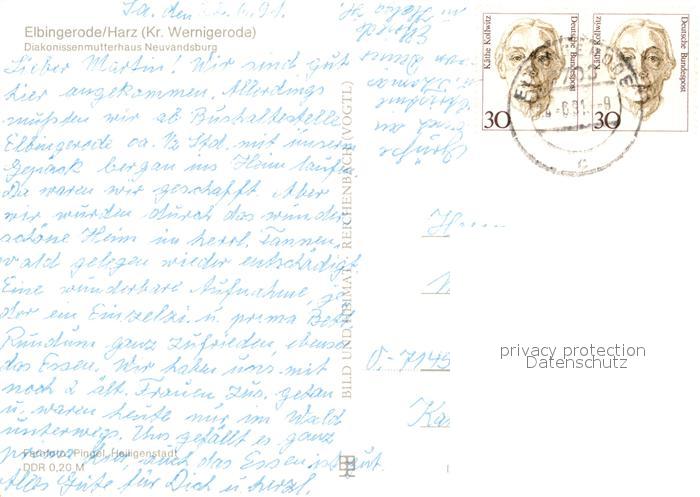 Sa. den 1.6.91.
Elbingerode/Harz (Kr. Wernigerode)
Diakonissenmutterhaus Neuvandsburg
Lieber Martin! Wir sind gut
hier angekommen. Allerdings
mußten wir ab Bushaltestelle
Elbingerode ca. ½ Std. mit unserem
Gepäck bergan ins Heim laufen
Da waren wir geschafft. Aber
wir wurden durch das wunder
schöne Heim im herrl. Tannen-
wald gelegen wieder entschädigt
Eine wunderbare Aufnahme, je
der ein Einzelzi. u. prima Bett
Rundum ganz zufrieden, ebenso
das Essen. Wir haben uns mit
noch 2 ält. Frauen zus. getan
u. waren heute nur im Wald
unterwegs. Uns gefällt es ganz
prima hier auch das Essen ist gut.
Alles Gute für Dich u. herzl.
Grüße
Farbfoto: Pingel, Heiligenstadt
DDR 0,20 M
BILD UND HEIMAT REICHENBACH (VOGTL)
Käthe Kollwitz
Deutsche Bundespost
30
Käthe Kollwitz
Deutsche Bundespost
30
H
O.-7145
Kas
privacy protection
Datenschutz